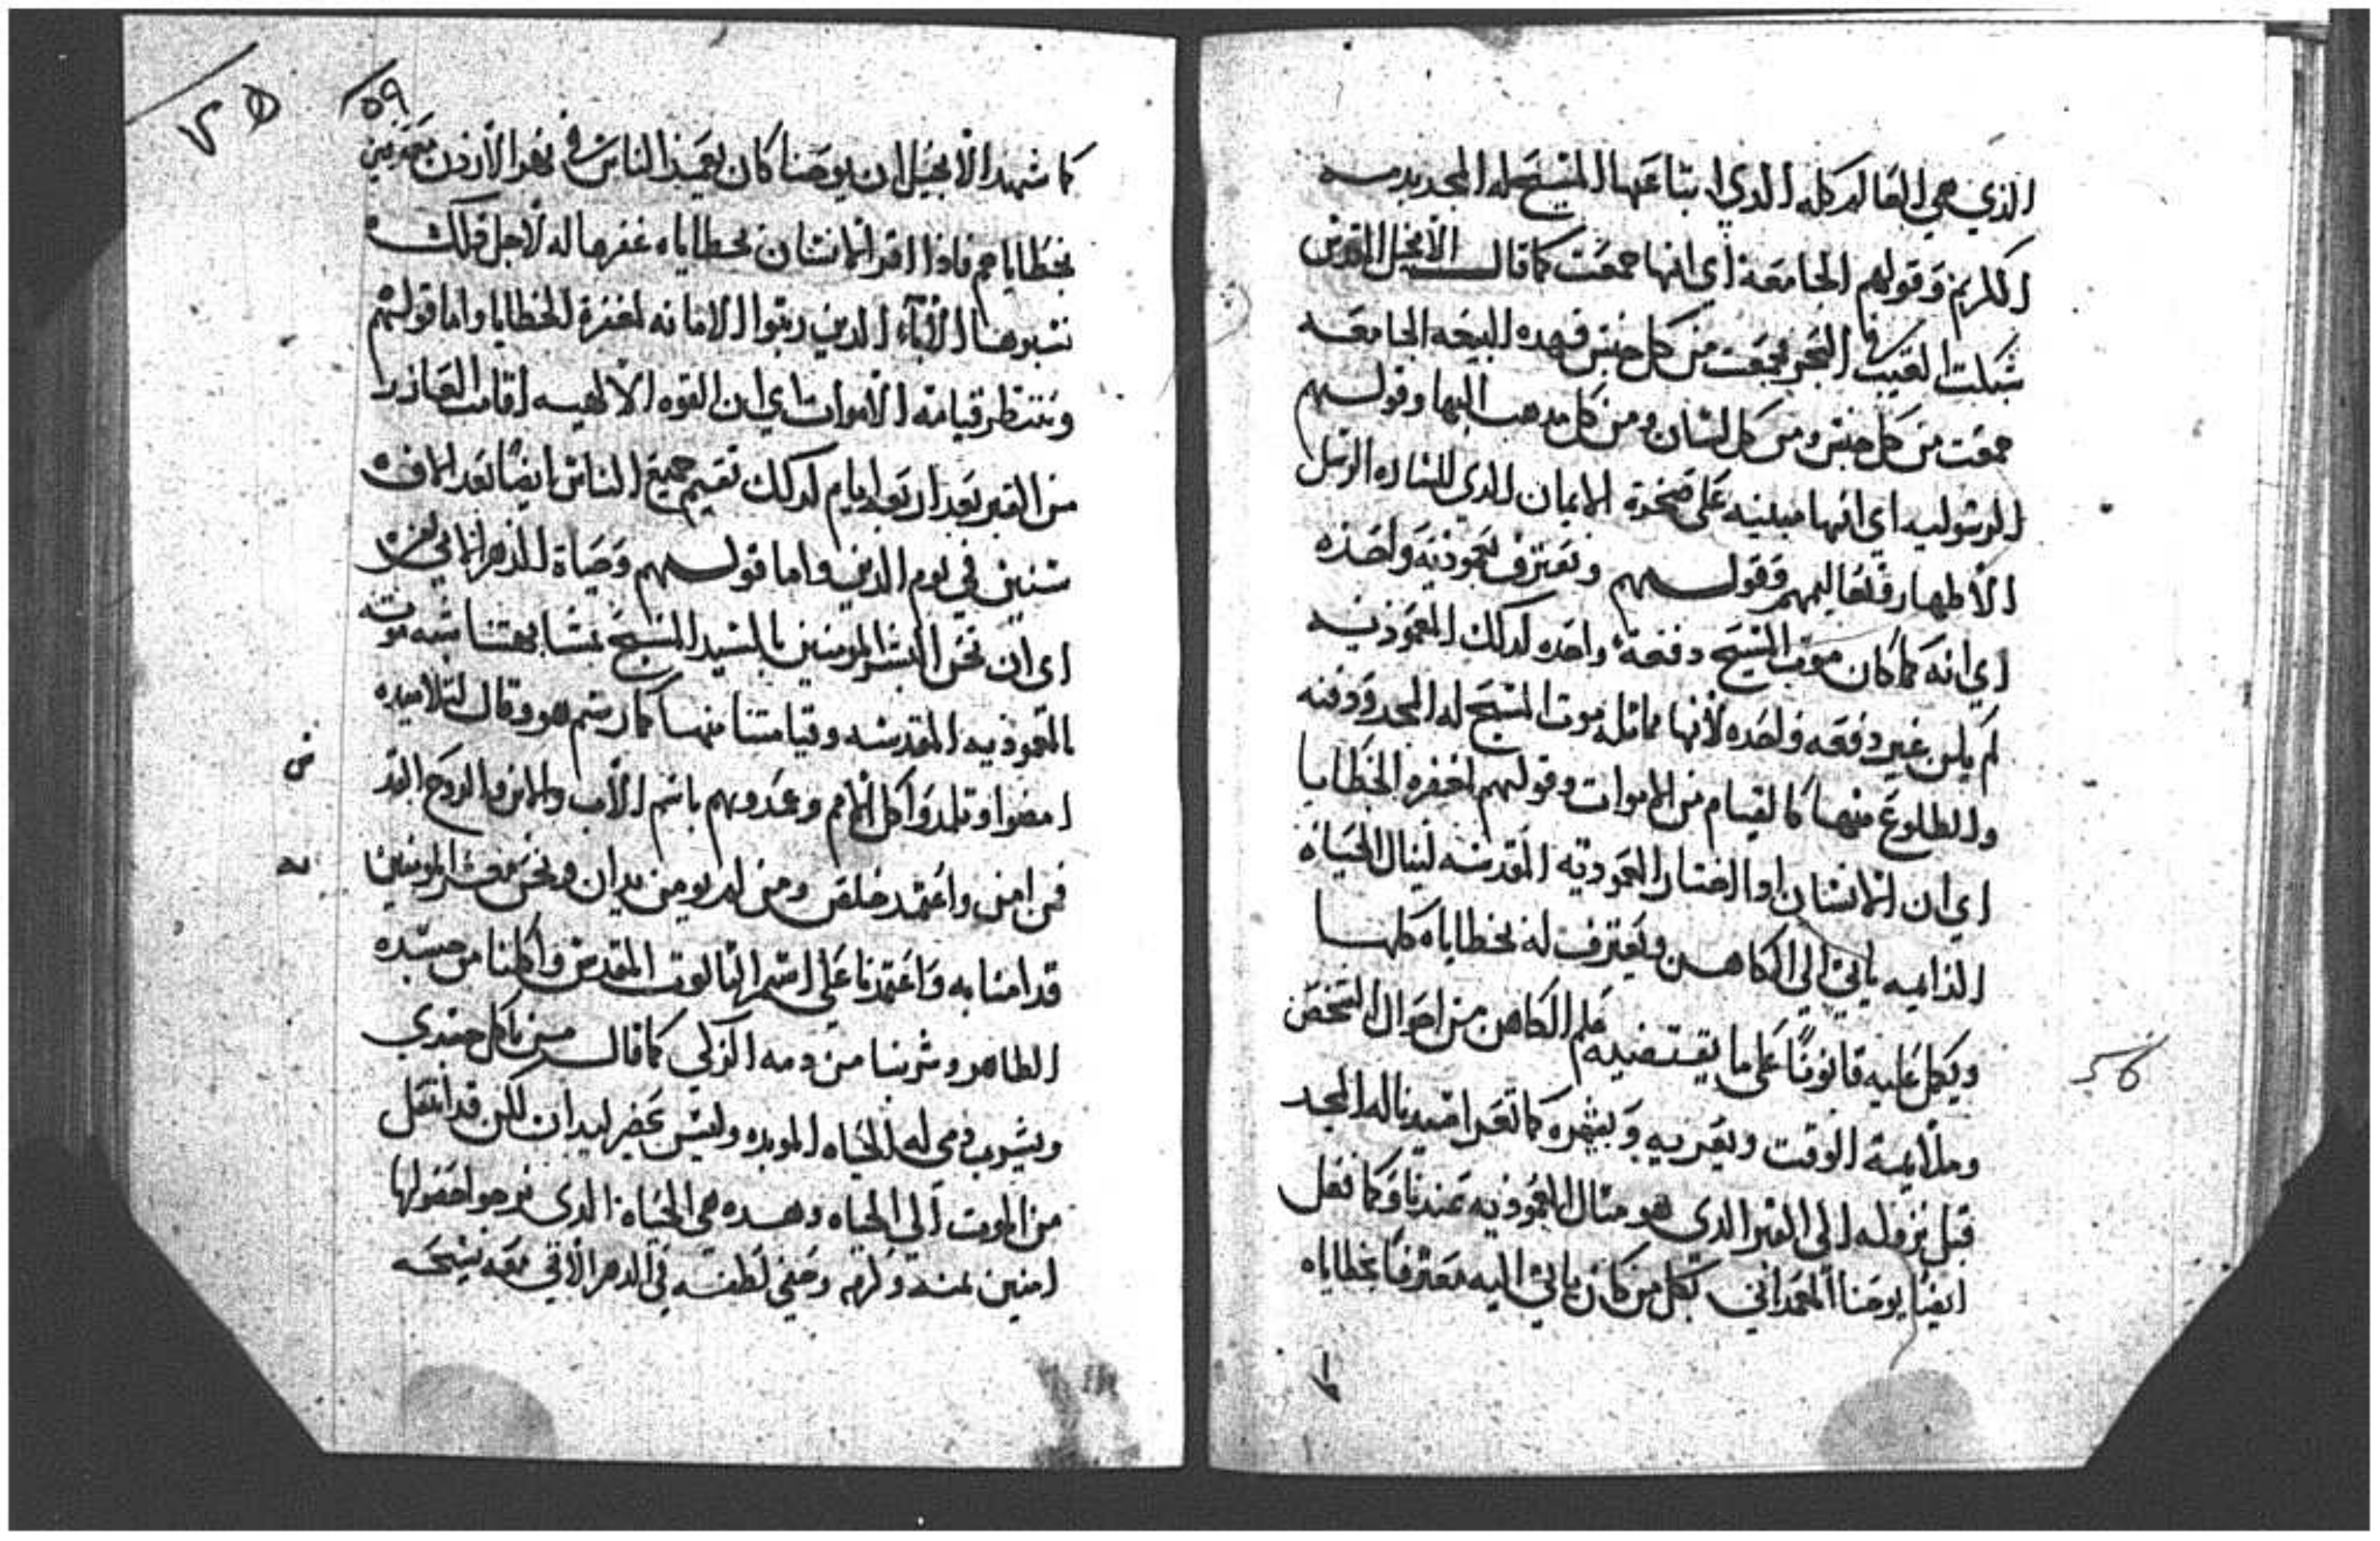 الذي هي العالم كله الذي ابتاعها المسيح له المجد بدمه
الكريم وقولهم الجامعة اي انها جمعت كما قال الانجيل المقدس
شبكت القيت في البحر فجمعت من كل جنس فهده البيعه الجامعه
جمعت من كل جنس ومن كل لسان ومن كل مدهب اليها وقولهم
الرسوليه اي انها مبنيه علي صخرة الايمان الدي للساده الرسل
الاطهار وتعاليمهم وقولهم ونعترف بمعموديه واحده
اي انه كما كان موت المسيح دفعة واحده كدلك المعموديه
لم يكن غير دفعه واحده لانها مماثله موت المسيح له المجد ودفنه
والطلوع منها كالقيام من الاموات وقولهم لمغفره الخطايا
اي ان الانسان ادا اختار المعموديه المقدسه لينال الحياه
الدايمه ياتي الي الكاهن ويعترف له بخطاياه كلها
ويكمل عليه قانونا علي ما يقتضيه علم الكاهن من احوال الشخص
وملايمة الوقت ويعريه كما تعرا سيدنا له المجد
قبل نزوله الي القبر الدي هو مثال المعموديه عندنا وكما فعل
ايضا يوحنا المعمداني بكل من كان ياتي اليه معترفا بخطاياه
٥٩
كما شهد الانجيل ان يوحنا كان يعمد الناس في نهر الاردن معترفين
بخطاياهم فاذا اقر الانسان بخطاياه غفرها له لاجل دلك
الاباء الدين رتبوا الامانه لمغفرة الخطايا واما قولهم
وننتظر قيامة الاموات اي ان القوه الالهيه اقامت العازر
من القبر بعد اربعة ايام كدلك تقيم جميع الناس ايضا بعد الاف
سنين في يوم الدين واما قولهم وحياة الدهر الاتي
اي ان نحن البشر المومنين بالسيد المسيح بمشابهتنا شبه موت
المعموديه المقدسه وقيامتنا منها كما رسم هو وقال لتلاميده
امضوا وتلمدوا كل الامم وعمدوهم باسم الاب والابن والروح القد
س
فمن امن واعتمد خلص ومن لم يومن يدان ونحن معشر المومنين
قد امنا به واعتمدنا علي اسم التالوت المقدس واكلنا من جسده
الطاهر وشربنا من دمه الزكي كما قال من ياكل جسدي
ويشرب دمي له الحياه الموبده وليس يحضر ليدان لكن قد انتقل
من الموت الي الحياه وهده هي الحياة الدي نرجوا حصولها
امنين بمنه وكرمه وخفي لطفه في الدهر الاتي